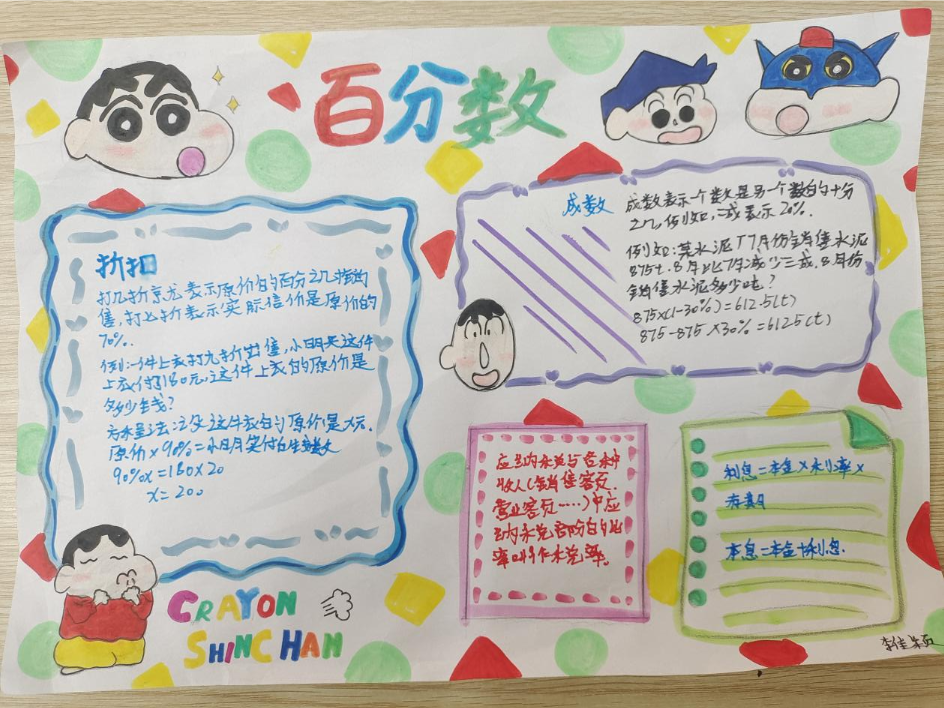 百分数
折扣
打几折就是表示原价的百分之几指的
售,打七折表示实际售价是原价的
70%.
例:一件上衣打九折出售,小明买这件
上衣付了180元,这件上衣的原价是
多少钱?
方程法:设这件衣的原价是x元.
原价×90%=小明实付的钱数
90%x=180×20
x=200
成数
成数表示一个数是另一个数的十分
之几,例如:二成表示20%.
例如:某水泥厂7月份销售水泥
875t.8月比7月减少三成.8月份
销售水泥多少吨?
875×(1-30%)=612.5(t)
875-875×30%=612.5(t)
应纳税额与各种
收入(销售额、
营业额……)中应
纳税部分的比
率叫作税率.
利息=本金×利率×
存期
本息=本金+利息.
CRAYON
SHINCHAN